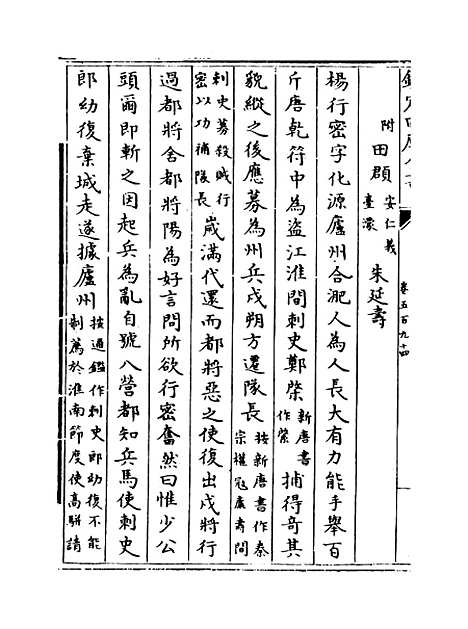 欽定四庫全書
卷五百九十四
附田頵 安仁義 臺濛 朱延壽
楊行密字化源廬州合淝人為人長大有力能手舉百
斤唐乾符中為盜江淮間刺史鄭棨新唐書作綮捕得奇其
貌縱之後應募為州兵戍朔方遷隊長按新唐書作秦宗權寇廬壽間
刺史募殺賊行密以功補隊長歲滿代還而都將惡之使復出戍將行
過都將舍都將陽為好言問所欲行密奮然曰惟少公
頭爾即斬之因起兵為亂自號八營都知兵馬使刺史
郎幼復棄城走遂據廬州按通鑑作刺史郎幼復不能制薦於淮南節度使高駢請